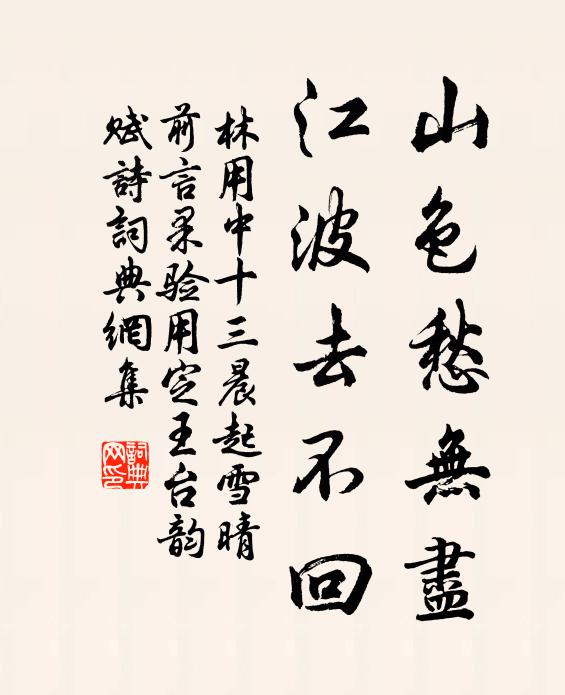 山色愁無盡
江波去不回
林用中十三晨起雪晴
前言果验用定王台韵
赋詩詞典網集
詞典网印